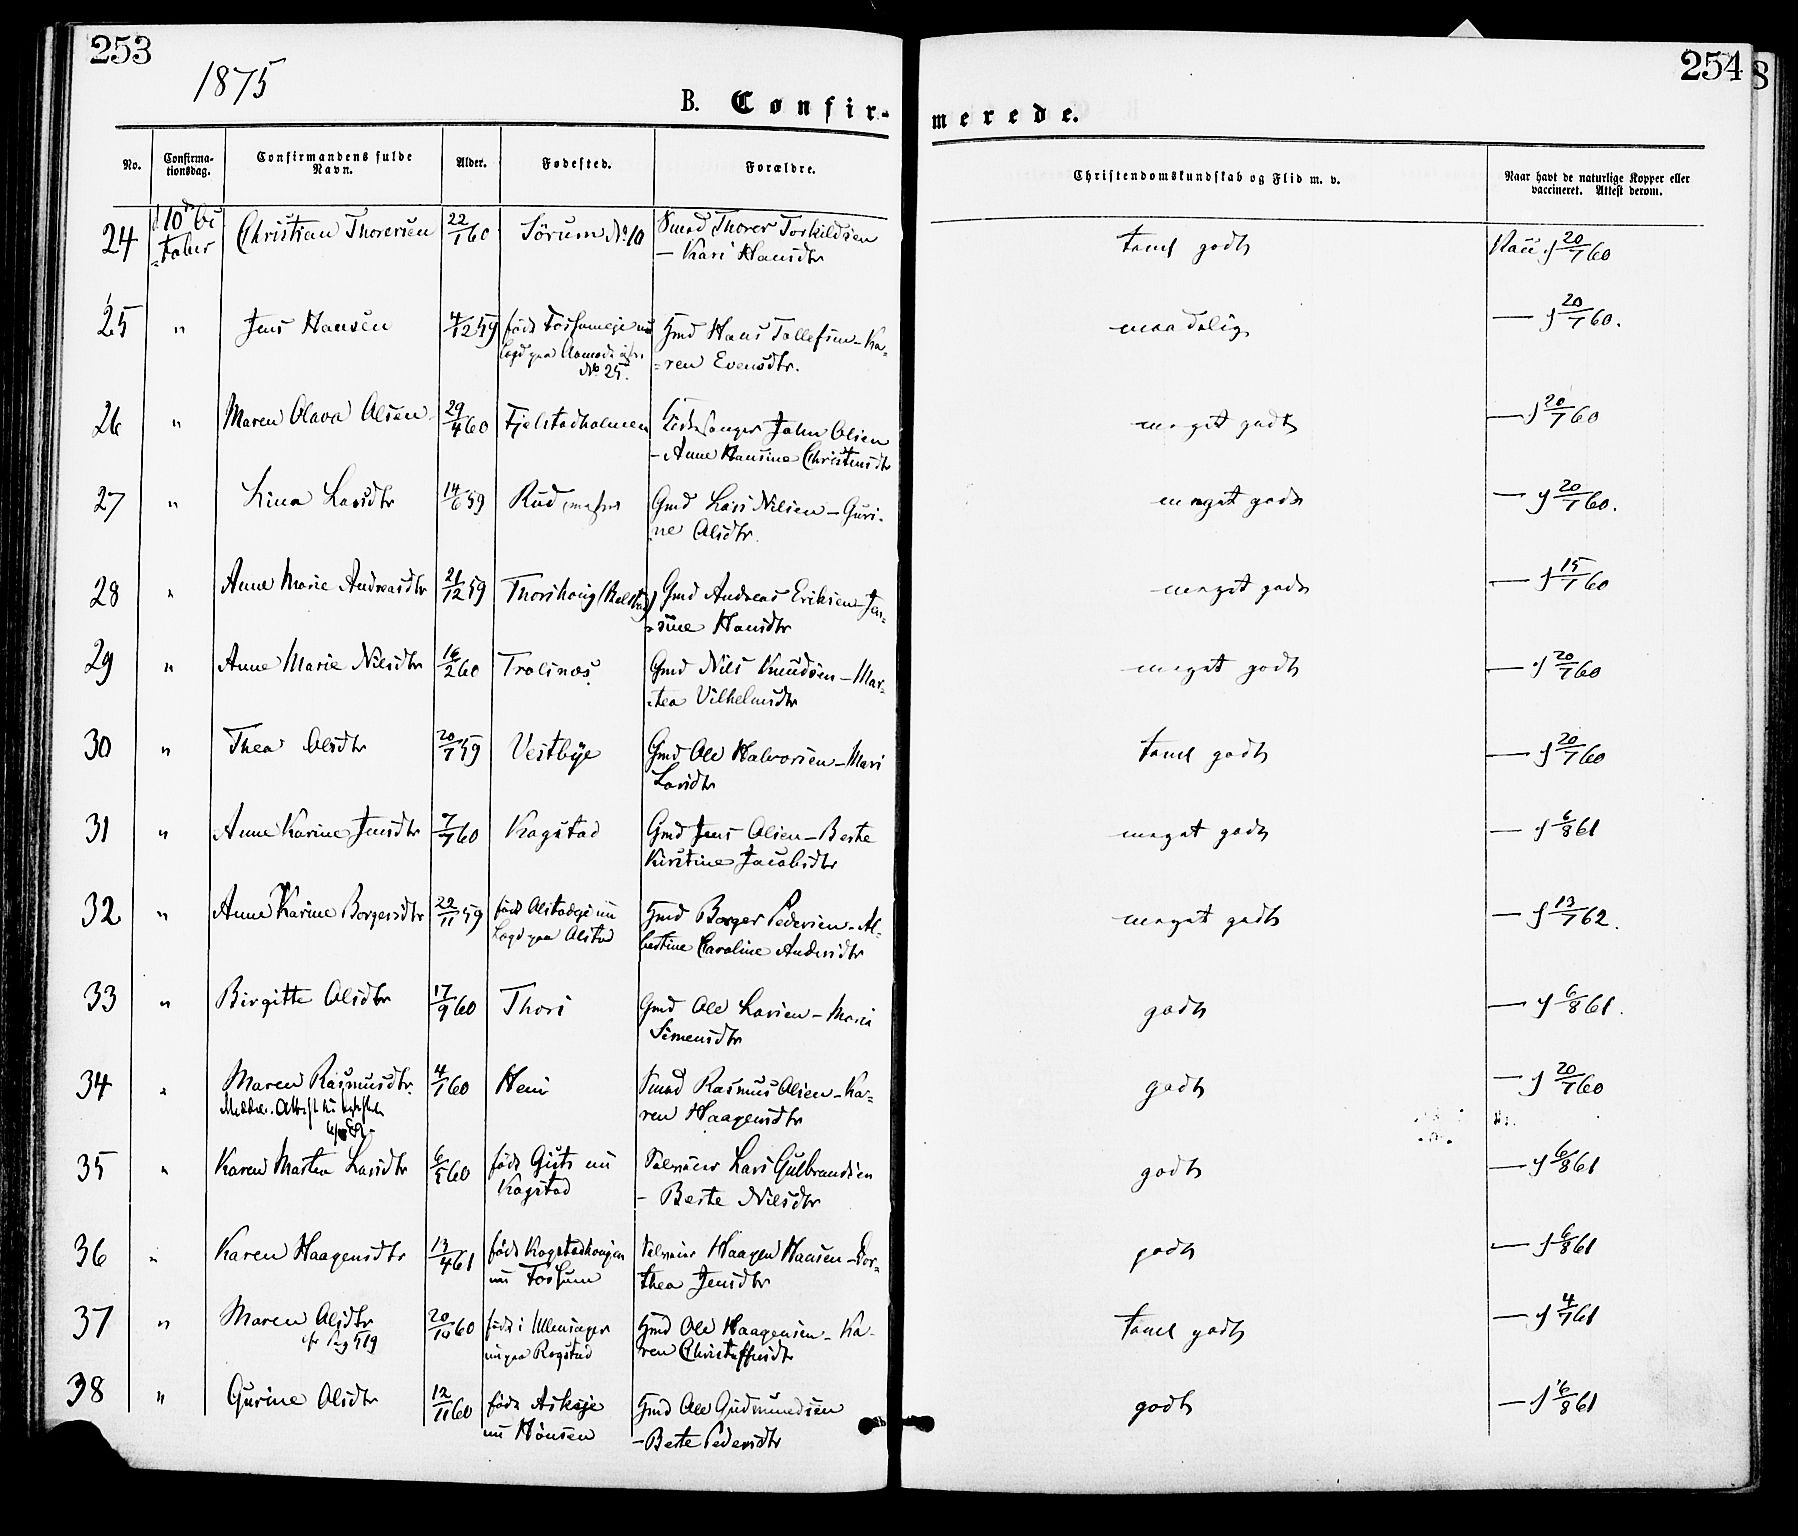 253
1875
B. Confir-
merede.
254
No.
Confirma-
tionsdag.
Confirmandens fulde
Navn.
Alder.
Fødested.
Forældre.
Christendomskundskab og Flid m. v.
Naar havt de naturlige Kopper eller
vaccineret. Attest derom.
24 Christian Thorersen 22/1 60 Sørum No 10 Smd Thorer Torkildsen
– Kari Hansdtr
taml godt
Vacc. 20/7 60
25 " Jens Hansen 4/12 59 født Fossumeje nu Gmd Hans Tollefsen – Ka-
Logd paa Aamodt
No 25.
ren Evensdtr.
maadelig
— 20/7 60.
26 " Maren Olava Olsen 29/4 60 Fjelstadholmen Kirkesanger John Olsen
– Anne Hansine Christensdtr
meget godt
— 20/7 60
27 " Lina Larsdtr 14/6 59 Rud Gmd Lars Nilsen – Guri-
ne Olsdtr.
meget godt
— 20/7 60.
28 " Anne Marie Andreasdtr 21/12 59 Thorshoug Gmd Andreas Eriksen – Jen-
sine Hansdtr
meget godt
— 15/1 60
29 " Anne Marie Nilsdtr 16/2 60 Trolsnæs Gmd Nils Knudsen – Mar-
tea Vilhelmsdtr
meget godt
— 20/7 60
30 " Thea Olsdtr 20/7 59 Vestbye Gmd Ole Halvorsen – Mari
Larsdtr
taml godt
— 20/7 60
31 " Anne Karine Jensdtr 7/7 60 Kogstad Gmd Jens Olsen – Berte
Kirstine Jacobsdtr
meget godt
— 6/8 61
32 " Anne Karine Borgersdtr 22/11 59 født Olstadeje nu Gmd Borger Pedersen – Al-
Logd paa Olstad
bertine Caroline Andersdtr
meget godt
— 13/7 62.
33 " Birgitte Olsdtr 17/9 60 Thori Gmd Ole Larsen – Maria
Simensdtr
godt
— 6/8 61.
34 " Maren Rasmusdtr. 4/1 60 Hem Smd Rasmus Olsen – Ka-
ren Haagensdtr
godt
— 20/7 60
35 " Karen Martea Larsdtr 6/5 60 født Gists nu Selveier Lars Gulbrandsen
Kogstad
– Berte Nilsdtr
godt
— 6/8 61
36 " Karen Haagensdtr 13/4 61 født Kogstadhougen Selveier Haagen Hansen – Dor-
nu Fossum
thea Jensdtr
godt
— 6/8 61
37 " Maren Olsdtr 20/10 60 født i Ullensager Gmd Ole Haagensen – Ka-
cfr Pag 519
nu paa Rogstad
ren Christoffersdtr
taml godt
— 4/7 61
38 " Gurine Olsdtr 12/11 60 født Askeje Gmd Ole Gudmundsen
nu Hønsen
– Berte Pedersdtr
godt
— 6/8 61